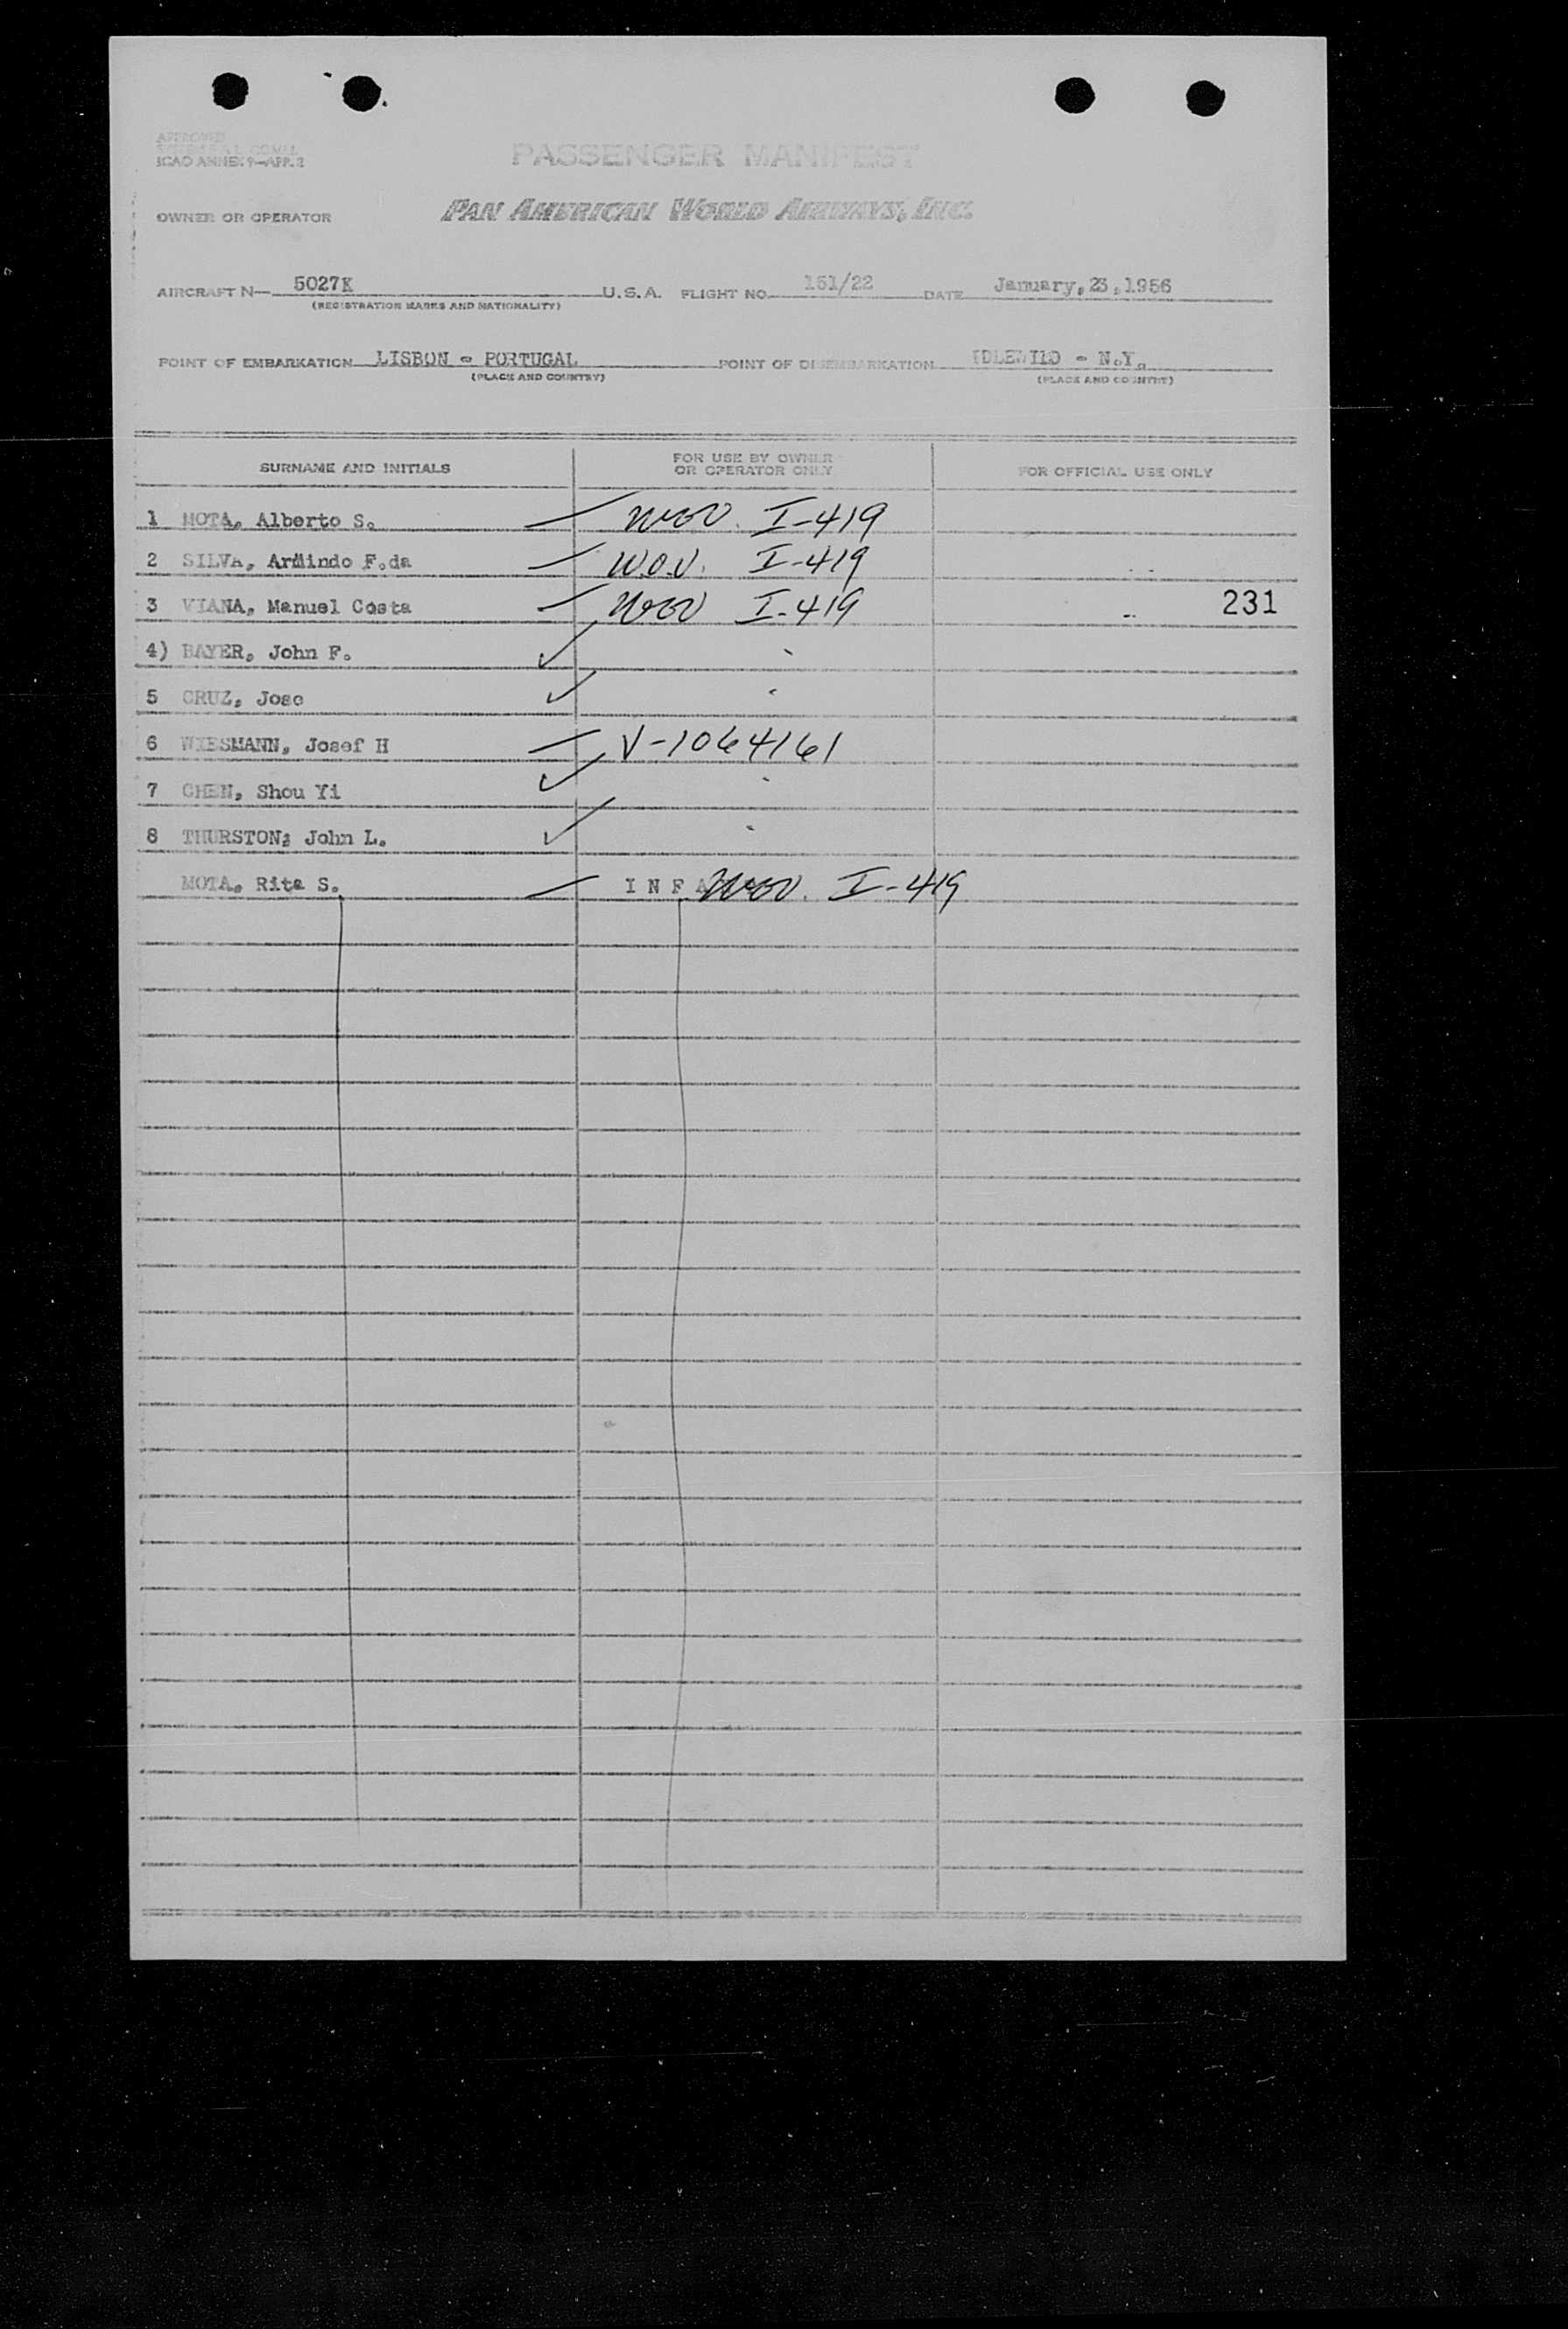 APPROVED
ICAO ANNEX 9—APP. 2
PASSENGER MANIFEST
OWNER OR OPERATOR PAN AMERICAN WORLD AIRWAYS, INC.
AIRCRAFT N— 5027K U.S.A. FLIGHT NO. 151/22 DATE January, 23, 1956
(REGISTRATION MARKS AND NATIONALITY)
POINT OF EMBARKATION LISBON - PORTUGAL POINT OF DISEMBARKATION IDLEWILD - N.Y.
(PLACE AND COUNTRY) (PLACE AND COUNTRY)
SURNAME AND INITIALS FOR USE BY OWNER OR OPERATOR ONLY FOR OFFICIAL USE ONLY
1 MOTA, Alberto S. I-419
2 SILVA, Armindo F.da W.O.V. I-419
3 VIANA, Manuel Costa I-419 231
4) BAYER, John F.
5 CRUZ, Jose
6 WIESMANN, Josef H V-1064161
7 CHEN, Shou Yi
8 THURSTON, John L.
MOTA, Rita S. I N F A I-419